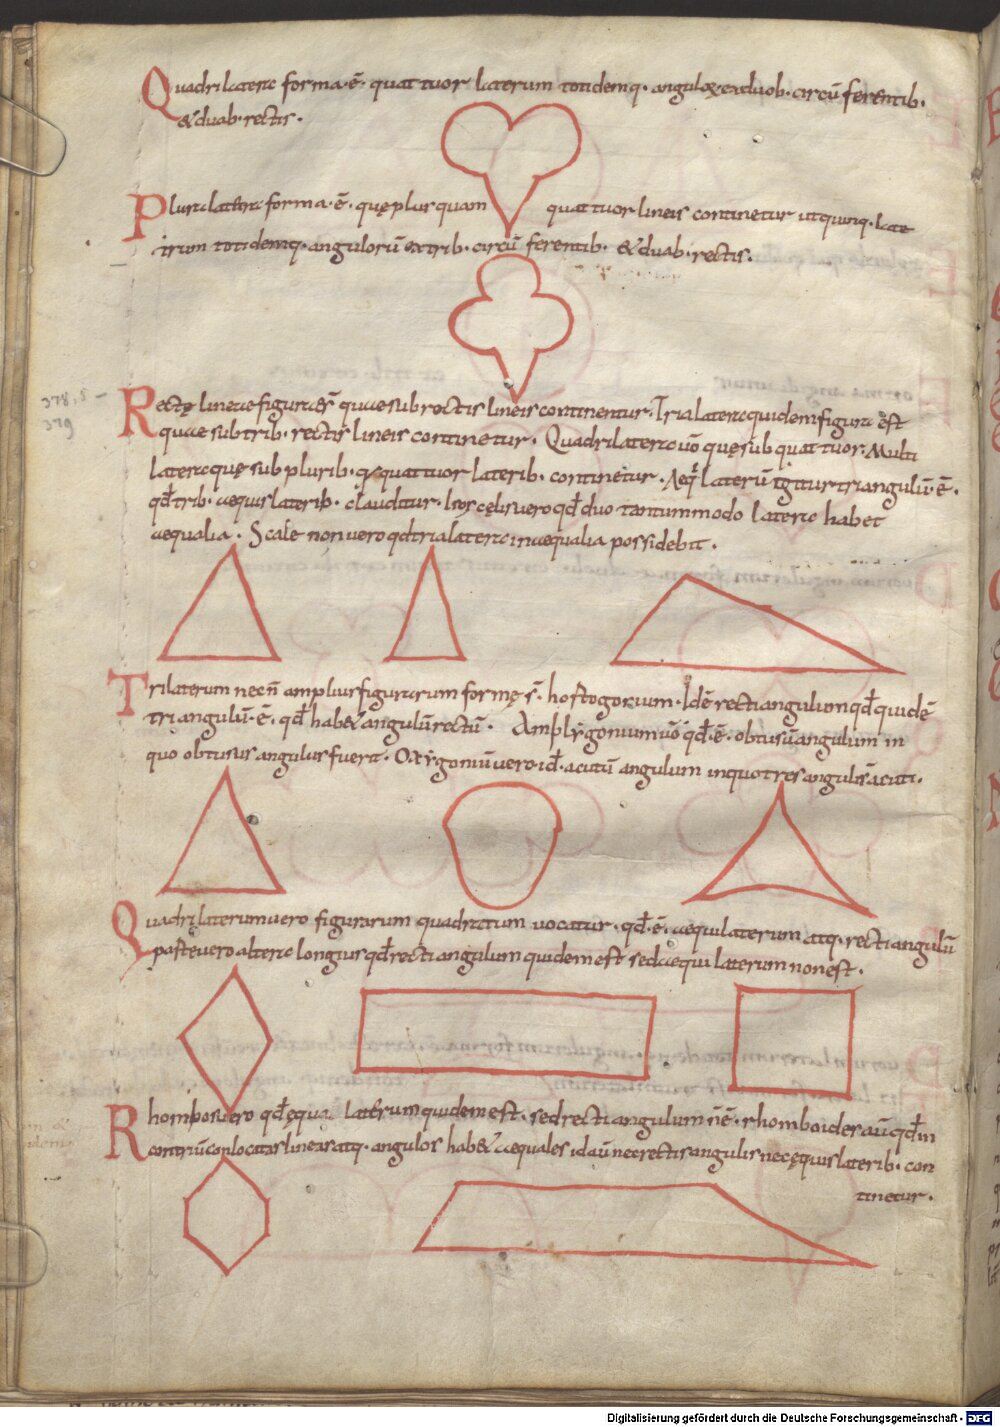 Quadrilatera forma·ē· quattuor laterum totidemq· anguloꝝ exduob· circū ferentib·
&duab·rectis·
Plurilatera forma·ē· quę plus quam quattuor lineis continetur utquinq· late
trum totidemq· angulorū extrib· circū ferentib· &duab·rectis·
378,5 –
379
Rectę lineae figurae s̄ quae sub rectis lineis continentur· Trialatera quidem figura est
quae sub trib· rectis lineis continetur· Quadrilatera uō quę sub quattuor· Multi
latera quę sub plurib· quattuor laterib· continetur· Aeq laterū igitur triangulū·ē·
qd̄ trib· aequis laterib· clauditur· Isoscelis uero qd̄ duo tantummodo latera habet
aequalia· Scale non uero qd tria latera inaequalia possidebit·
Trilaterum necn̄ amplius figurarum formę s̄· hortogonium· Idē rectiangulum qd̄ quidē
triangulū·ē· qd̄ hab& angulū rectū· Ampligonium uō qd̄·ē· obtusū angulum in
quo obtusus angulus fuerit· Oxygoniū uero·id· acutū angulum in quo tres anguli s̄ acuti·
Quadrilaterum uero figurarum quadratum uocatur· qd̄·ē· aequilaterum atq· rectiangulū
parte uero altera longius qd̄ rectiangulum quidem est sed aequilaterum non est·
Rhombos uero qd̄ ęqua laterum quidem est· sed rectiangulum n̄ ē· rhomboides aū qd̄ in
contriū conlocatas lineas atq· angulos hab& aequales id aū nec rectis angulis nec ęquis laterib· con
tinetur·
Digitalisierung gefördert durch die Deutsche Forschungsgemeinschaft - DFG